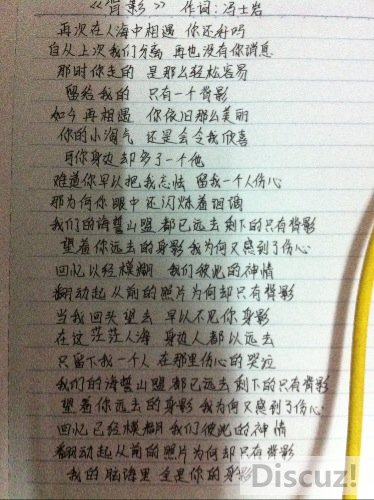 《背影》 作词：冯士岩
再次在人海中相遇 你还好吗
自从上次我们分离 再也没有你消息
那时你走的 是那么轻松容易
留给我的 只有一个背影
如今再相遇 你依旧那么美丽
你的小淘气 还是会令我欣喜
可你身边却多了一个他
难道你早以把我忘怯 留我一个人伤心
那为何你眼中还闪烁着泪滴
我们的海誓山盟都已远去剩下的只有背影
望着你远去的身影我为何又感到了伤心
回忆以经模糊 我们彼此的神情
翻动起从前的照片为何却只有背影
当我回头望去 早以不见你身影
在这茫茫人海 身边人都以远去
只留下我一个人在那里伤心的哭泣
我们的海誓山盟都已远去剩下的只有背影
望着你远去的身影我为何又感到了伤心
回忆已经模糊我们彼此的神情
翻动起从前的照片为何却只有背影
我的脑海里 全是你的身影
Discuz!